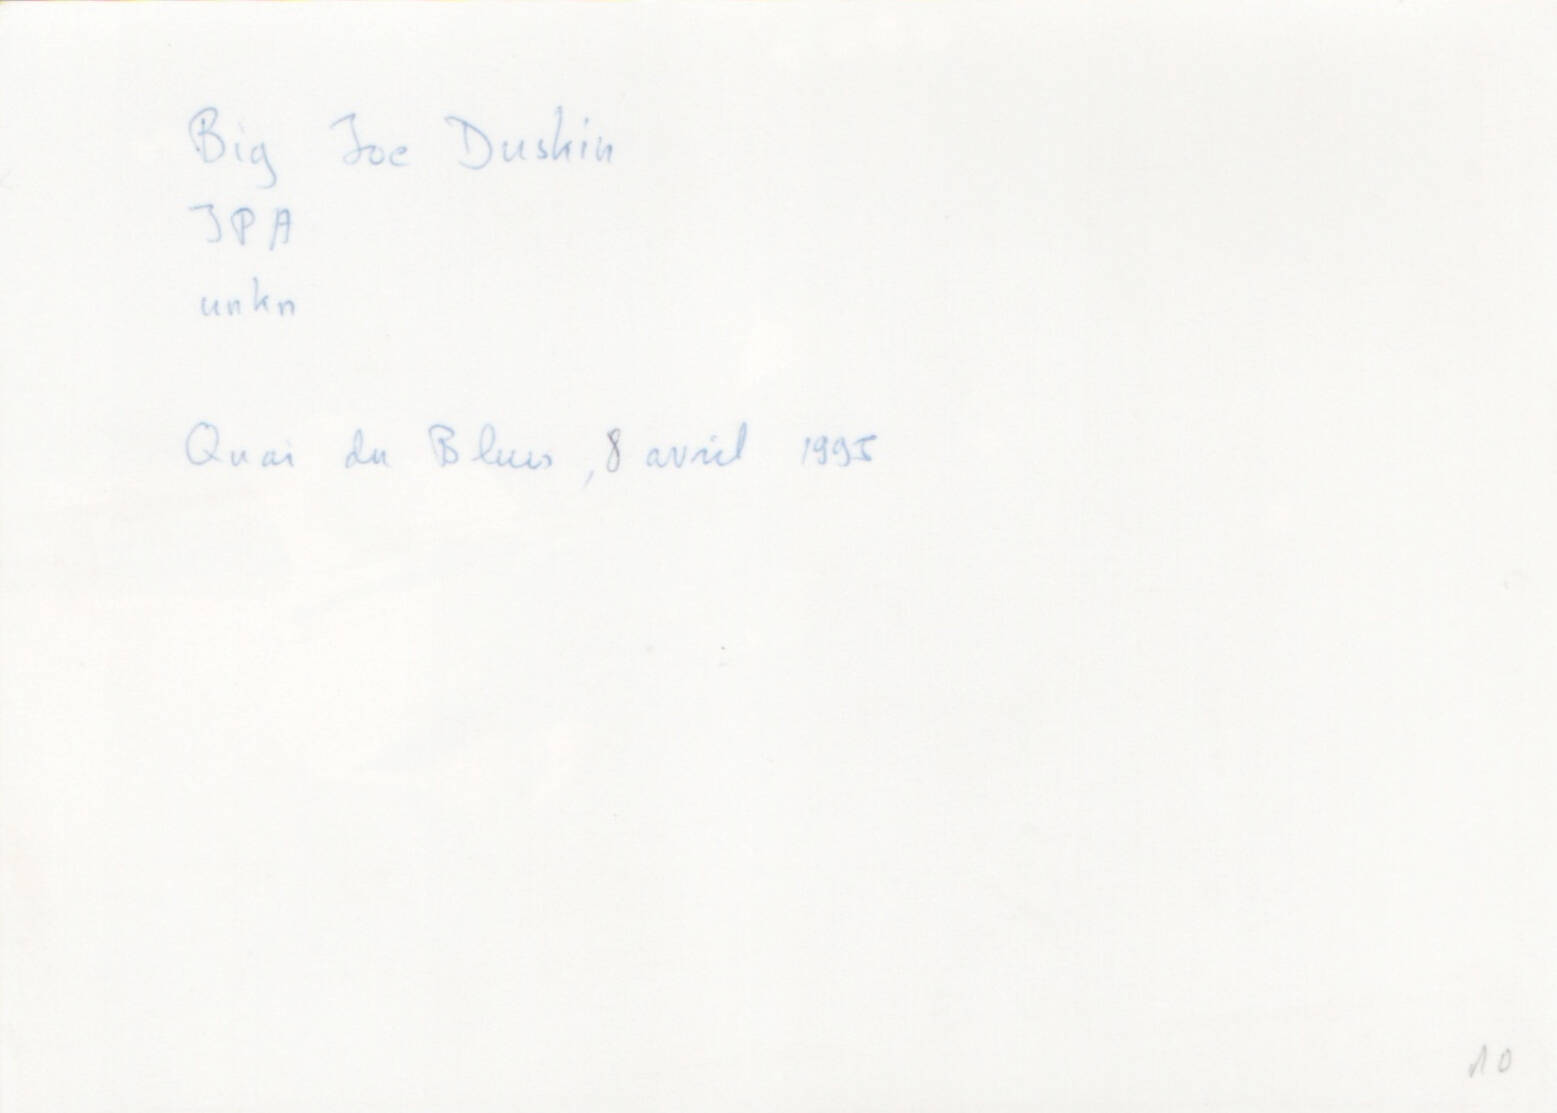 Big Joe Duskin
JPA
unkn
Quai du Blues, 8 avril 1995
10